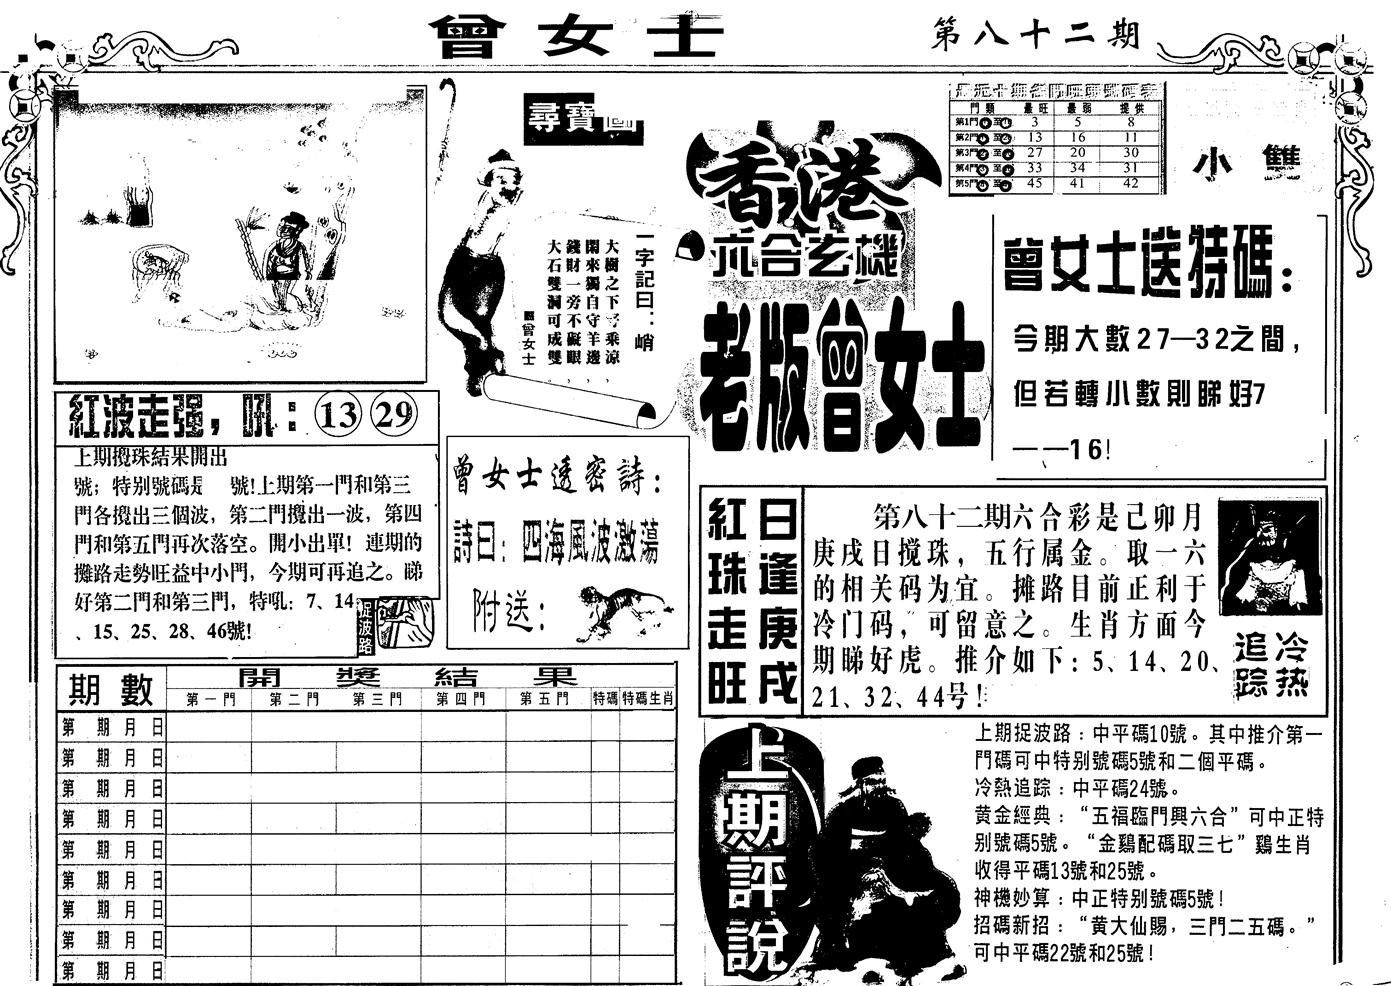 曾女士
第八十二期
尋寶圖
一字記曰：峭
大樹之下好乘涼，
閑來獨自守羊邊，
錢財一旁不礙眼，
大石雙洞可成雙。
曾女士
香港
六合玄機
老版曾女士
門類 最旺 最弱 提供
第1門 至 3 5 8
第2門 至 13 16 11
第3門 至 27 20 30
第4門 至 33 34 31
第5門 至 45 41 42
小 雙
曾女士送特碼：
今期大數27—32之間，
但若轉小數則睇好7
——16！
紅波走强，吼：13 29
上期攪珠結果開出
號；特別號碼是 號！上期第一門和第三
門各攪出三個波，第二門攪出一波，第四
門和第五門再次落空。開小出單！連期的
攤路走勢旺益中小門，今期可再追之。睇
好第二門和第三門，特吼：7、14
、15、25、28、46號！
捉波路
曾女士透密詩：
詩曰：四海風波激蕩
附送：
紅珠走旺
日逢庚戌
第八十二期六合彩是己卯月
庚戌日搅珠，五行属金。取一六
的相关码为宜。摊路目前正利于
冷门码，可留意之。生肖方面今
期睇好虎。推介如下：5、14、20、
21、32、44号！
冷热
追踪
開獎結果
期數 第一門 第二門 第三門 第四門 第五門 特碼 特碼生肖
第 期 月 日
第 期 月 日
第 期 月 日
第 期 月 日
第 期 月 日
第 期 月 日
第 期 月 日
第 期 月 日
第 期 月 日
上期評說
上期捉波路：中平碼10號。其中推介第一
門碼可中特別號碼5號和二個平碼。
冷熱追踪：中平碼24號。
黄金經典：“五福臨門興六合”可中正特
別號碼5號。“金鷄配碼取三七”鷄生肖
收得平碼13號和25號。
神機妙算：中正特別號碼5號！
招碼新招：“黄大仙賜，三門二五碼。”
可中平碼22號和25號！